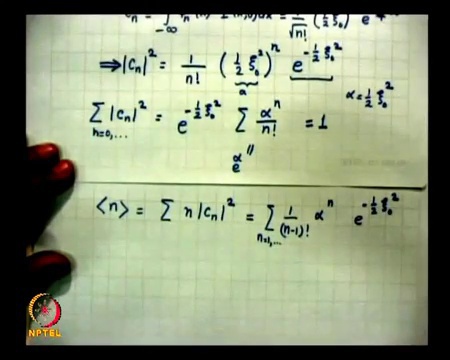 Cₙ = ∫ -∞ dx = 1/√n! (½ξ₀²) e
⟹ |Cₙ|² = 1/n! (½ξ₀²)ⁿ e^{-½ξ₀²}
α
α = ½ξ₀²
Σ_{n=0,...} |Cₙ|² = e^{-½ξ₀²} Σ αⁿ/n! = 1
e^α
⟨n⟩ = Σ n|Cₙ|² = Σ_{n=1,...} 1/(n-1)! αⁿ e^{-½ξ₀²}
NPTEL